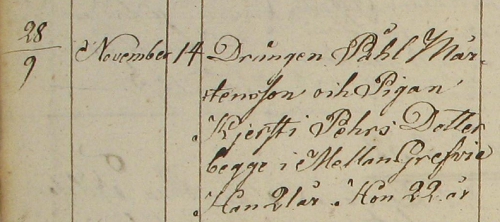 28
9
November 14 Drängen Påhl Mår-
tensson och Pigan
Kjersti Pehrs Dotter
begge i Mellan Grefvie
Han 21 år. Hon 22 år